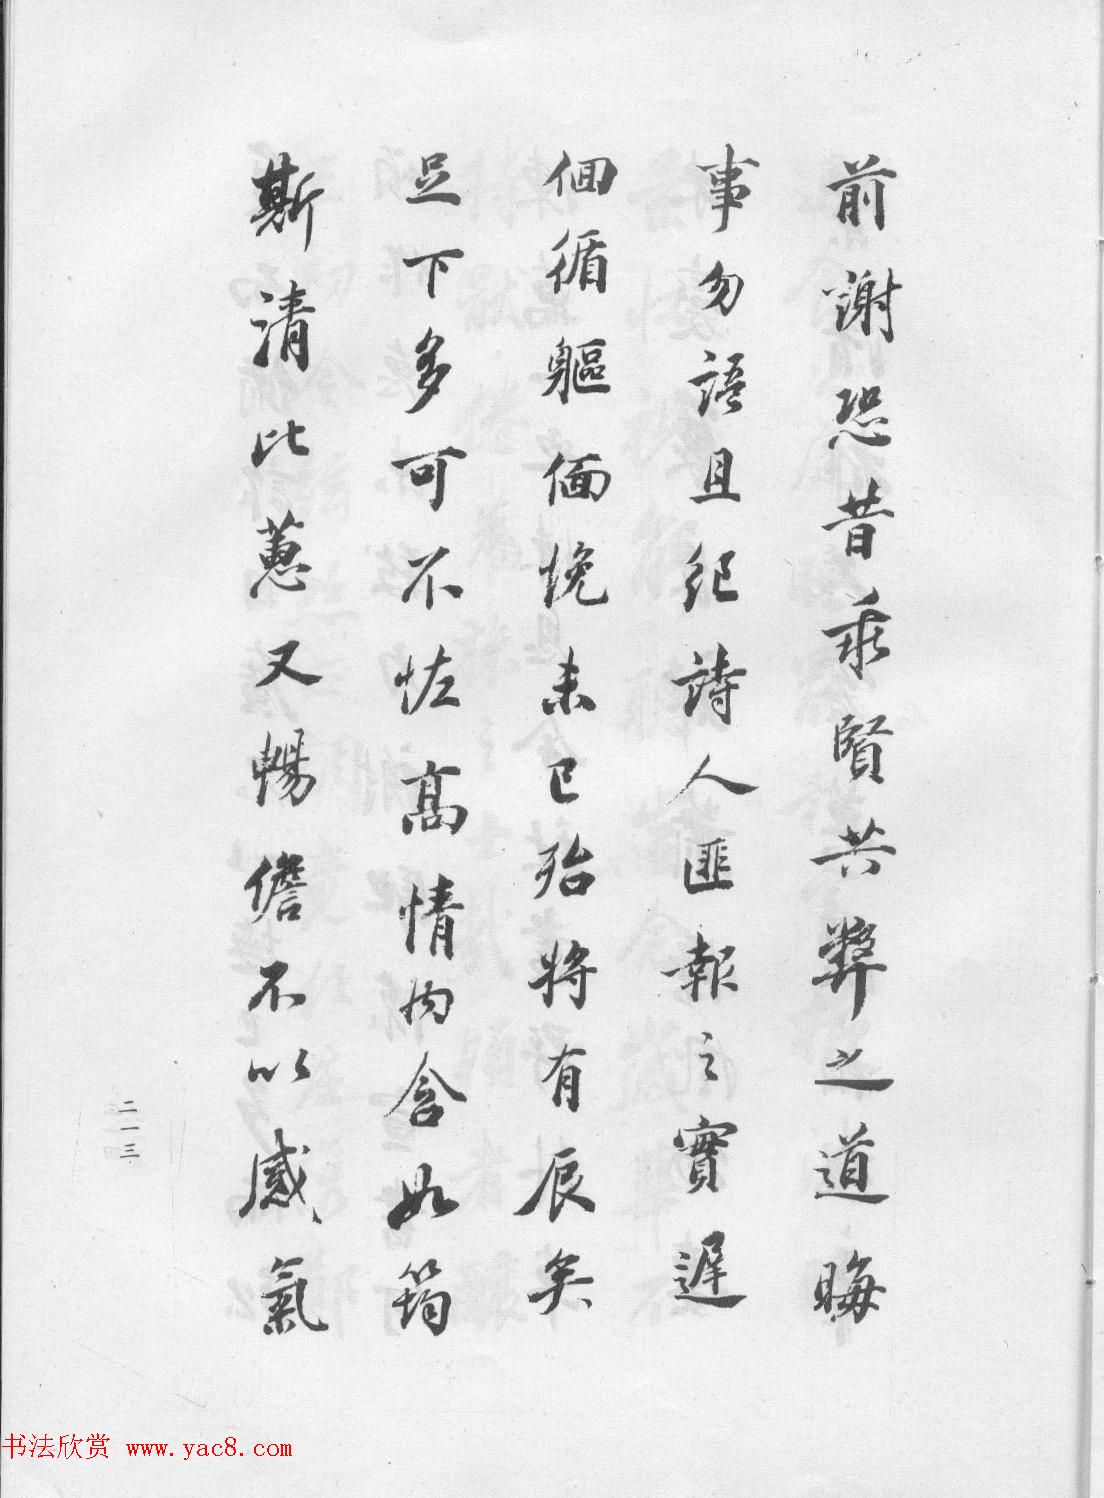 前謝恐昔乖賢共弊之道晦
事勿語且紀詩人匪報之實遲
佪循軀偭悗未已殆將有辰矣
足下多可不怪高情内含如筠
斯清比蕙又暢儋不以感氣
二一三
书法欣赏 www.yac8.com